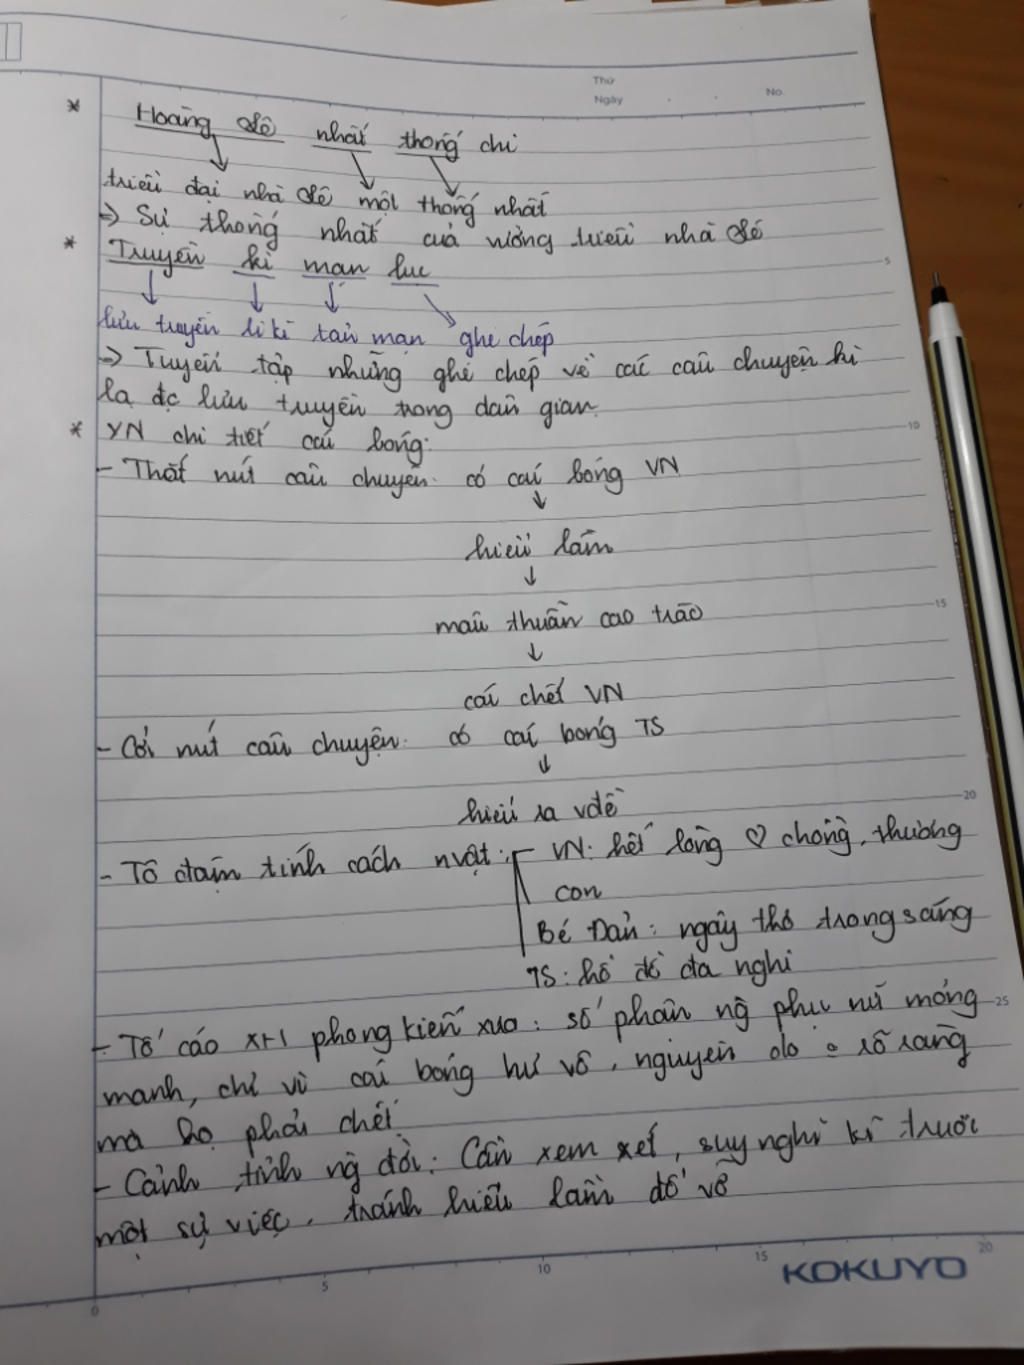 Thứ
Ngày . . No.
* Hoàng Lê nhất thống chí
triều đại nhà Lê một thống nhất
=> Sự thống nhất của vương triều nhà Lê
* Truyền kì mạn lục
lưu truyền li kì tản mạn ghi chép
=> Tuyển tập những ghi chép về các câu chuyện kì
lạ đc lưu truyền trong dân gian.
* YN chi tiết cái bóng:
- Thắt nút câu chuyện: có cái bóng VN
↓
hiểu lầm
↓
mâu thuẫn cao trào
↓
cái chết VN
- Cởi nút câu chuyện: có cái bóng TS
↓
hiểu ra vđề
- Tô đậm tính cách nvật: VN: hết lòng ♡ chồng, thương
con
Bé Đản: ngây thơ trong sáng
TS: hồ đồ đa nghi
- Tố cáo XH phong kiến xưa: số phận ng phụ nữ mỏng
manh, chỉ vì cái bóng hư vô, nguyên do o rõ ràng
mà họ phải chết
- Cảnh tỉnh ng đời: Cần xem xét, suy nghĩ kĩ trước
một sự việc, tránh hiểu lầm đổ vỡ
5
10
15
20
25
0 5 10 15 20
KOKUYO